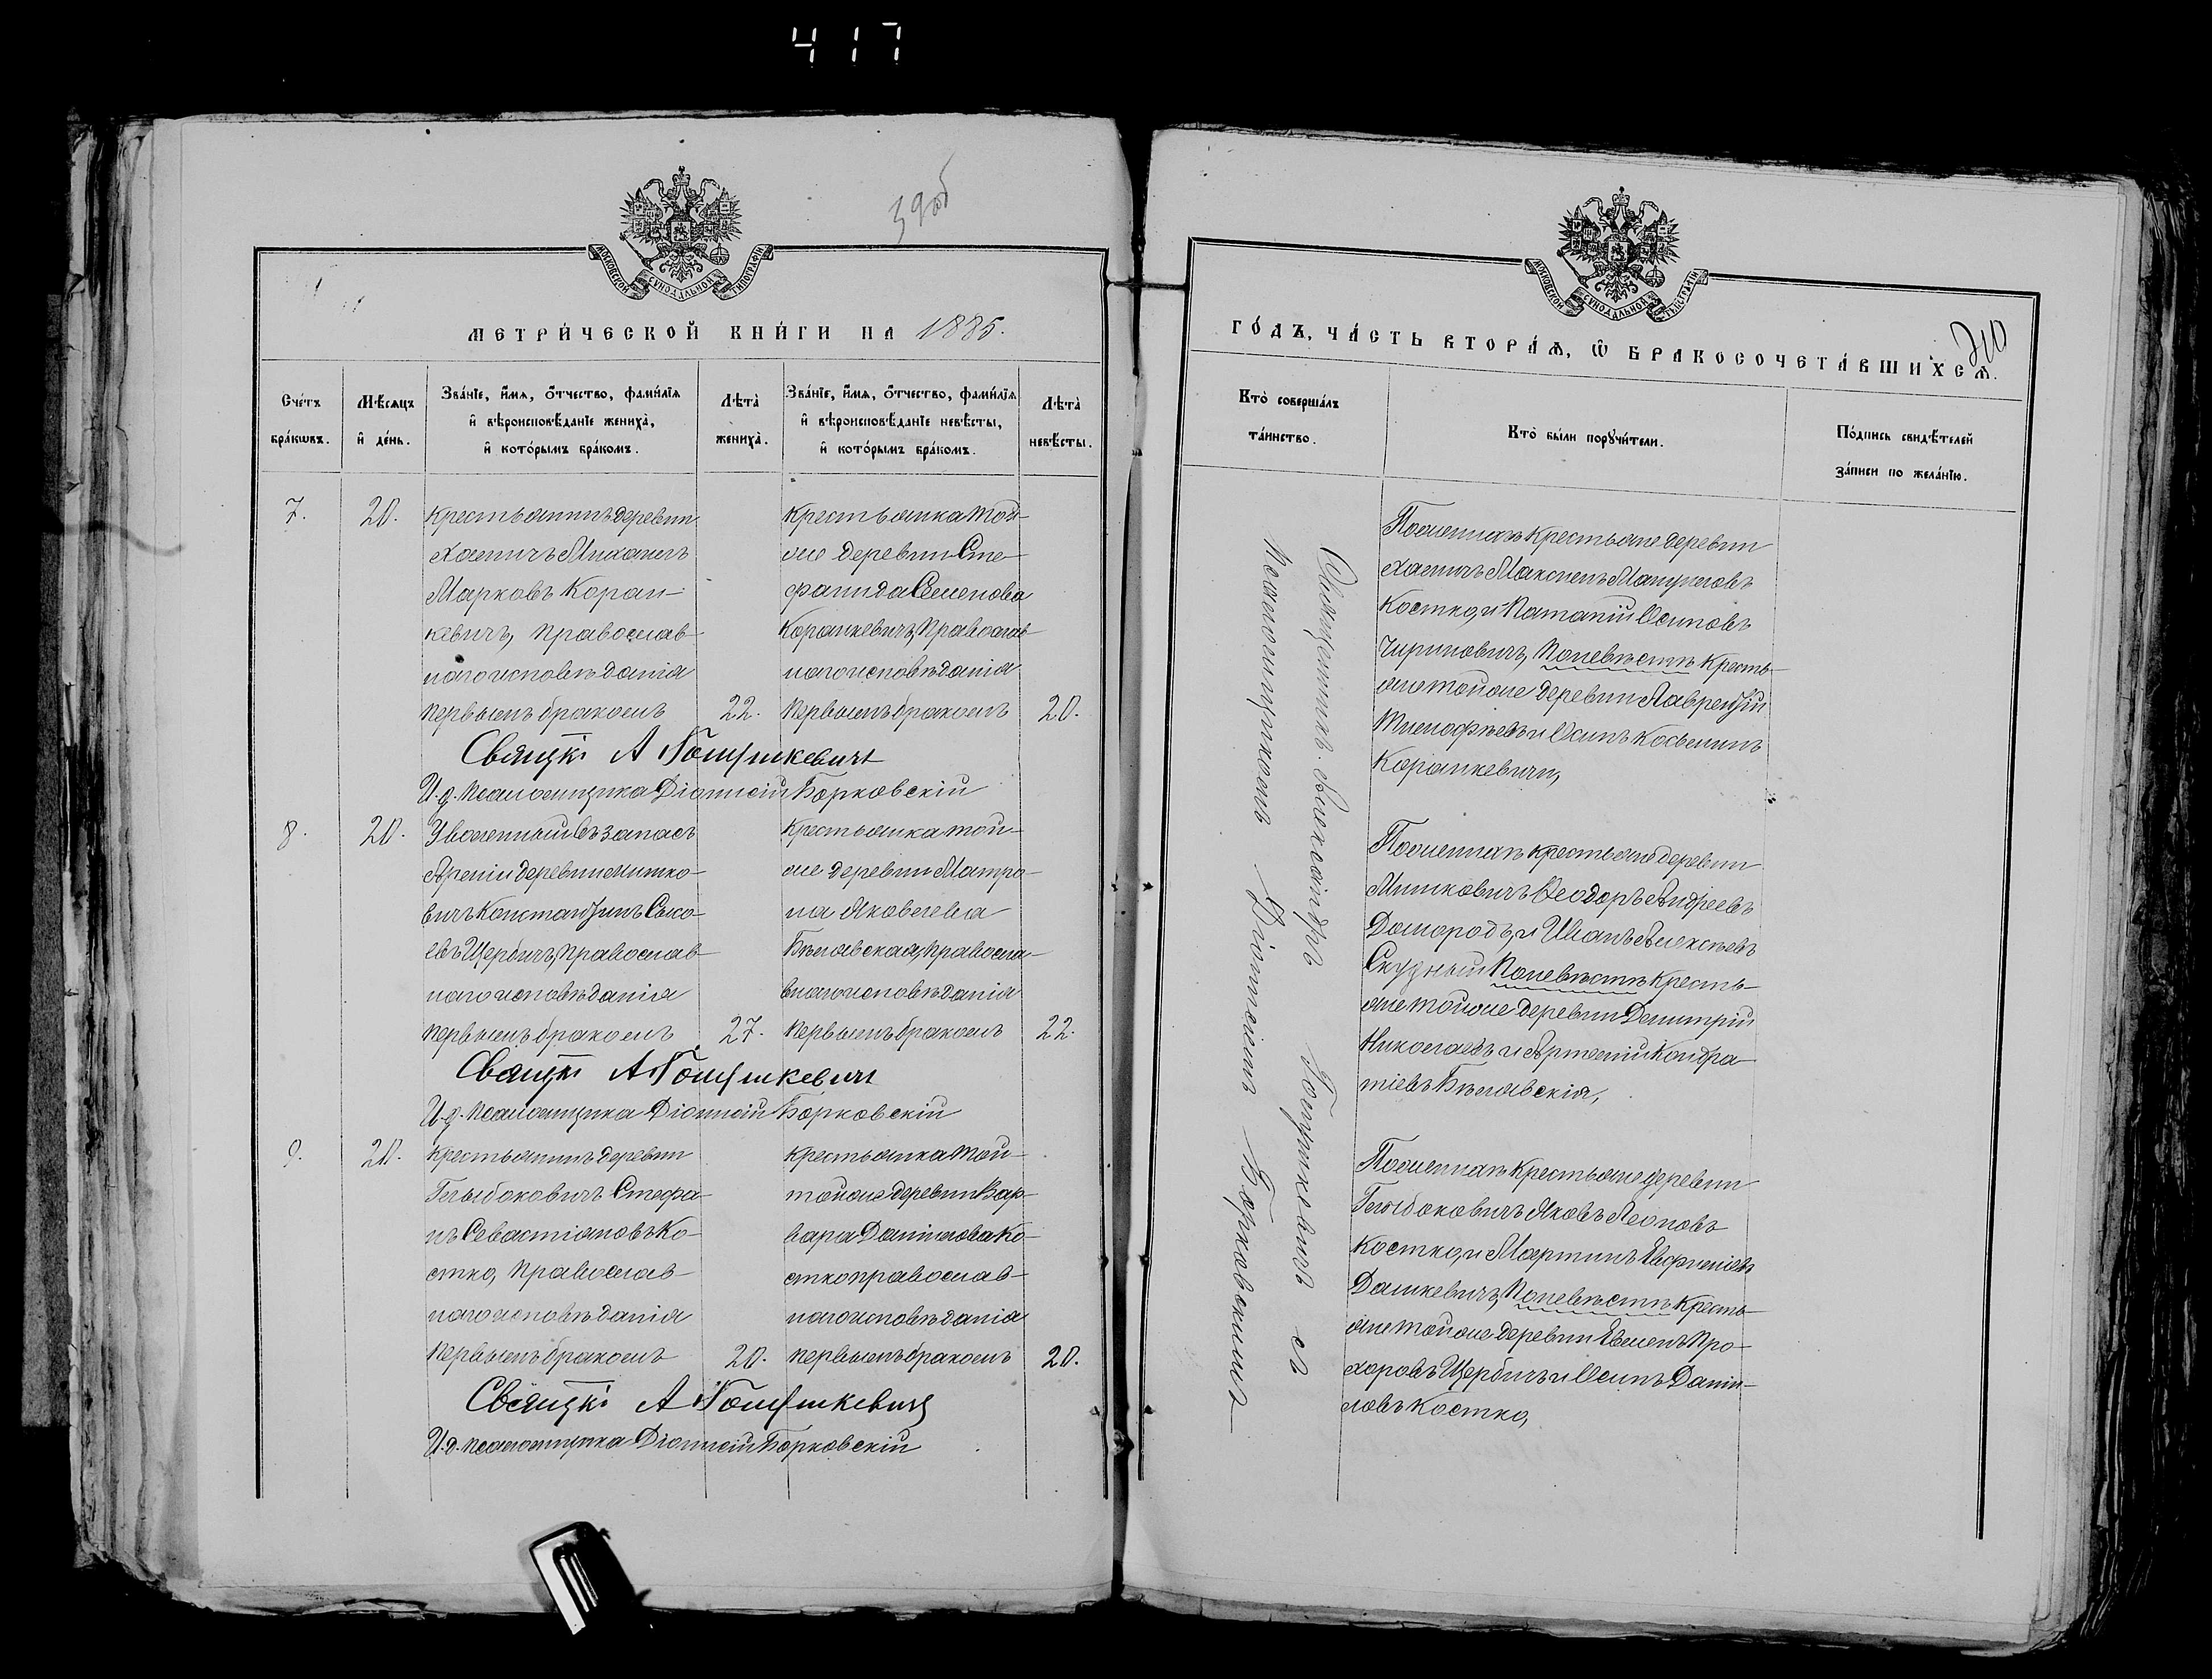 417
39об
МОСКОВСКОЙ СУНОДАЛЬНОЙ ТИПОГРАФІИ
МЕТРИ́ЧЕСКОЙ КНИ́ГИ НА 1885.
Сче́тъ бра́кωвъ.
Мѣ́сяцъ и҆ де́нь.
Зва́нїе, и҆́мѧ, ѻ҆́тчество, фами́лїѧ и҆ вѣроисповѣ́данїе жениха̀, и҆ кото́рымъ бра́комъ.
Лѣта̀ жениха̀.
Зва́нїе, и҆́мѧ, ѻ҆́тчество, фами́лїѧ и҆ вѣроисповѣ́данїе невѣ́сты, и҆ кото́рымъ бра́комъ.
Лѣта̀ невѣ́сты.
7.
20.
Крестьянинъ деревни
Ханичъ Михаилъ
Марковъ Коран-
кевичъ, православ-
наго исповѣданія
первымъ бракомъ
22.
Крестьянка той-
же деревни Сте-
фанида Семенова
Коранкевичъ, православ-
наго исповѣданія
первымъ бракомъ
20.
Свящ. А Гомушкевичъ
И. д. псаломщика Діонисій Борковскій
8.
20.
Уволенный въ запасъ
Арміи деревни Мишко-
вичъ Константинъ Сысо-
евъ Щербичъ, православ-
наго исповѣданія
первымъ бракомъ
27.
Крестьянка той-
же деревни Матро-
на Яковлева
Бѣлявская, правосла-
внаго исповѣданія
первымъ бракомъ
22.
Свящ. А Гомушкевичъ
И. д. псаломщика Діонисій Борковскій
9.
20.
Крестьянинъ деревни
Глыбоковичъ Стефа-
нъ Севастіановъ Ко-
стко, православ-
наго исповѣданія
первымъ бракомъ
20.
Крестьянка той-
тойже деревни Вар-
вара Даніилова Ко-
стко православ-
наго исповѣданія
первымъ бракомъ
20.
Свящ. А Гомушкевичъ
И. д. псаломщика Діонисій Борковскій
МОСКОВСКОЙ СУНОДАЛЬНОЙ ТИПОГРАФІИ
210
ГО́ДЪ, ЧА́СТЬ ВТОРА́Ѧ, Ѽ БРАКОСОЧЕТА́ВШИХСѦ.
Кто̀ соверша́лъ та́инство.
Кто̀ бы́ли порꙋчи́тели.
По́дпись свидѣ́телей за́писи по жела́нїю.
Священникъ Александръ Гомушкевичъ съ
псаломщикомъ Діонисіемъ Борковскимъ
По женихѣ крестьяне деревни
Ханичъ Максимъ Матфеевъ
Костко, и Потапій Осиповъ
Чириковичъ, по невѣстѣ кресть-
яне тойже деревни Лаврентій
Тимофѣевъ и Осипъ Косьминъ
Коранкевичи,
По женихѣ крестьяне деревни
Мишковичъ Ѳеодоръ Андреевъ
Домородъ, и Иванъ Алексѣевъ
Скудный по невѣстѣ кресть-
яне тойже деревни Димитрій
Николаевъ и Артемій Кондра-
тіевъ Бѣлявскія,
По женихѣ крестьяне деревни
Глыбоковичъ Яковъ Леоновъ
Костко, и Мартинъ Евфиміевъ
Дашкевичъ, по невѣстѣ кресть-
яне тойже деревни Евменъ Про-
хоровъ Щербичъ и Осипъ Даніи-
ловъ Костко,